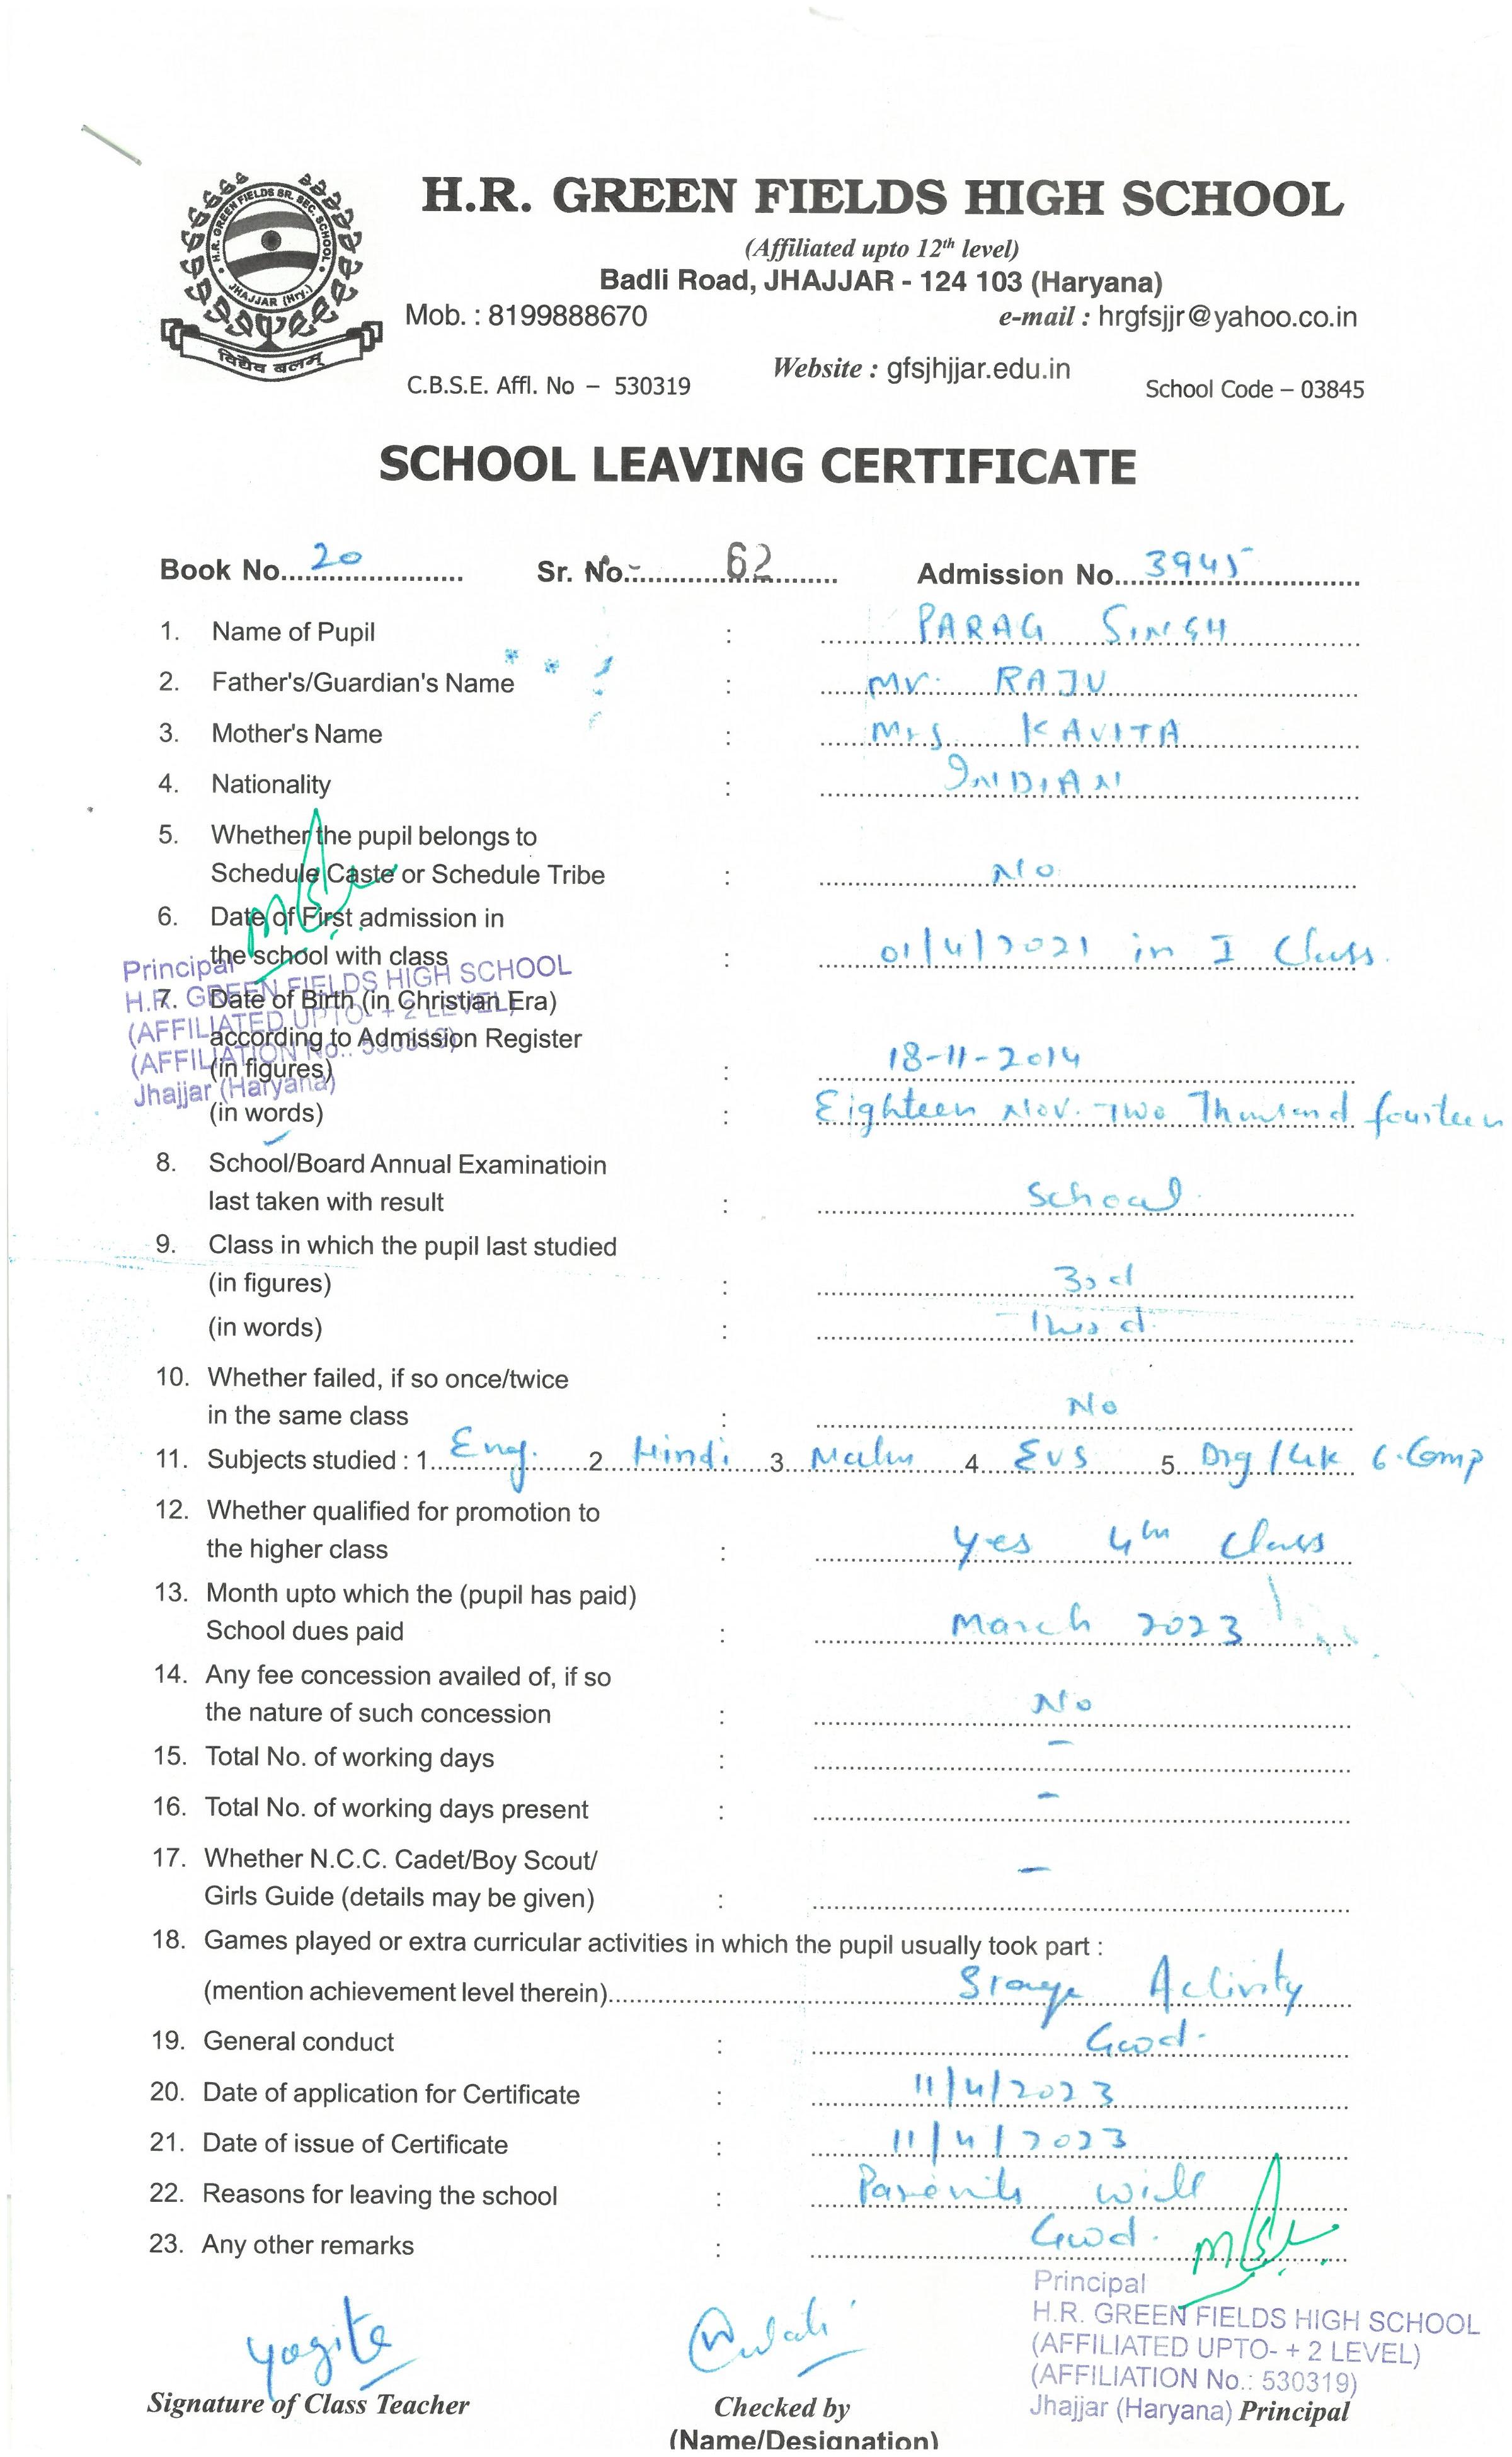 H.R. GREEN FIELDS SR. SEC. SCHOOL
JHAJJAR (Hry.)
विद्यैव बलम्
H.R. GREEN FIELDS HIGH SCHOOL
(Affiliated upto 12th level)
Badli Road, JHAJJAR - 124 103 (Haryana)
Mob. : 8199888670 e-mail : hrgfsjjr@yahoo.co.in
Website : gfsjhjjar.edu.in
C.B.S.E. Affl. No – 530319 School Code – 03845
SCHOOL LEAVING CERTIFICATE
Book No. 20 Sr. No. 62 Admission No. 3945
1. Name of Pupil : PARAG SINGH
2. Father's/Guardian's Name : Mr. RAJU
3. Mother's Name : Mrs KAVITA
4. Nationality : INDIAN
5. Whether the pupil belongs to
Schedule Caste or Schedule Tribe : No
6. Date of First admission in
the school with class : 01/4/2021 in I Class
Principal
H.R. GREEN FIELDS HIGH SCHOOL
(AFFILIATED UPTO- + 2 LEVEL)
(AFFILIATION No.: 530319)
Jhajjar (Haryana)
7. Date of Birth (in Christian Era)
according to Admission Register
(in figures) : 18-11-2014
(in words) : Eighteen Nov. Two Thousand fourteen
8. School/Board Annual Examinatioin
last taken with result : School
9. Class in which the pupil last studied
(in figures) : 3rd
(in words) : Third
10. Whether failed, if so once/twice
in the same class : No
11. Subjects studied : 1. Eng. 2. Hindi 3. Maths 4. EVS 5. Drg/GK 6. Comp
12. Whether qualified for promotion to
the higher class : yes 4th class
13. Month upto which the (pupil has paid)
School dues paid : March 2023
14. Any fee concession availed of, if so
the nature of such concession : No
15. Total No. of working days : -
16. Total No. of working days present : -
17. Whether N.C.C. Cadet/Boy Scout/
Girls Guide (details may be given) : -
18. Games played or extra curricular activities in which the pupil usually took part :
(mention achievement level therein) Stage Activity
19. General conduct : Good.
20. Date of application for Certificate : 11/4/2023
21. Date of issue of Certificate : 11/4/2023
22. Reasons for leaving the school : Parents will
23. Any other remarks : Good.
Principal
H.R. GREEN FIELDS HIGH SCHOOL
(AFFILIATED UPTO- + 2 LEVEL)
(AFFILIATION No.: 530319)
Jhajjar (Haryana) Principal
Yogita
Signature of Class Teacher Checked by
(Name/Designation)